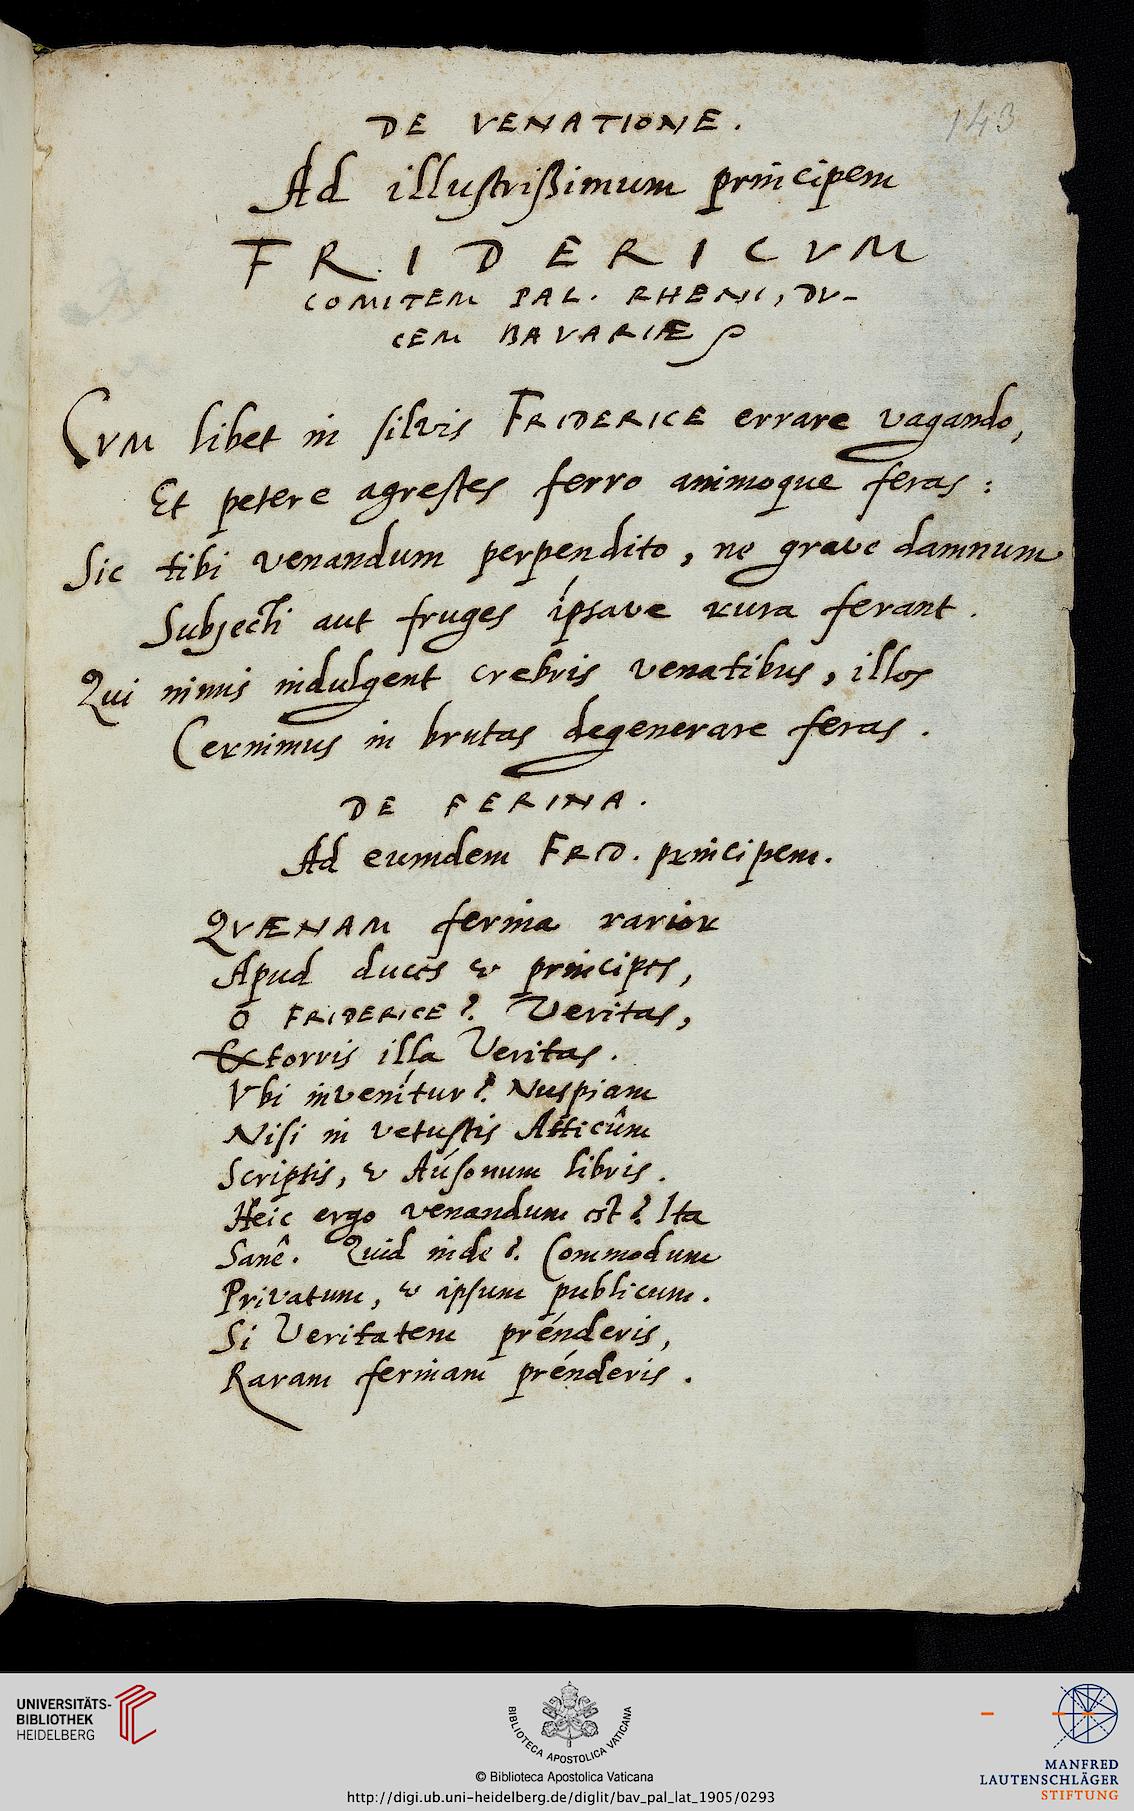 143
DE VENATIONE.
Ad illustrißimum principem
FRIDERICVM
COMITEM PAL. RHENI, DV-
CEM BAVARIÆ
CVM libet in silvis FRIDERICE errare vagando,
Et petere agrestes ferro animoque feras:
Sic tibi venandum perpendito, ne grave damnum
Subjecti aut fruges ipsave rura ferant.
Qui nimis indulgent crebris venatibus, illos
Cernimus in brutas degenerare feras.
DE FERINA.
Ad eumdem FRID. principem.
QVÆNAM ferina rarior
Apud duces & principes,
O FRIDERICE? Veritas,
Extorris illa Veritas.
Vbi invenítur? Nuspiam
Nisi in vetustis Atticûm
Scriptis, & Aúsonum libris.
Heic ergo venandum est? Ita
Sanê. Quid inde? Commodum
Privatum, & ipsum publicum.
Si Veritatem prénderis,
Raram ferinam prénderis.
UNIVERSITÄTS-
BIBLIOTHEK
HEIDELBERG
BIBLIOTECA APOSTOLICA VATICANA
© Biblioteca Apostolica Vaticana
http://digi.ub.uni-heidelberg.de/diglit/bav_pal_lat_1905/0293
MANFRED
LAUTENSCHLÄGER
STIFTUNG